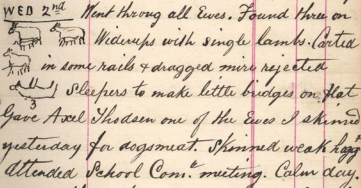 WED 2nd Went throug all Ewes. Found three on
Widerups with single lambs. Carted
in some rails & dragged mire rejected
3 Sleepers to make little bridges on flat
Gave Axel Thodsen one of the Ewes I skinned
yesterday for dogsmeat. Skinned weak hogg
attended School Com.te meeting. Calm day.